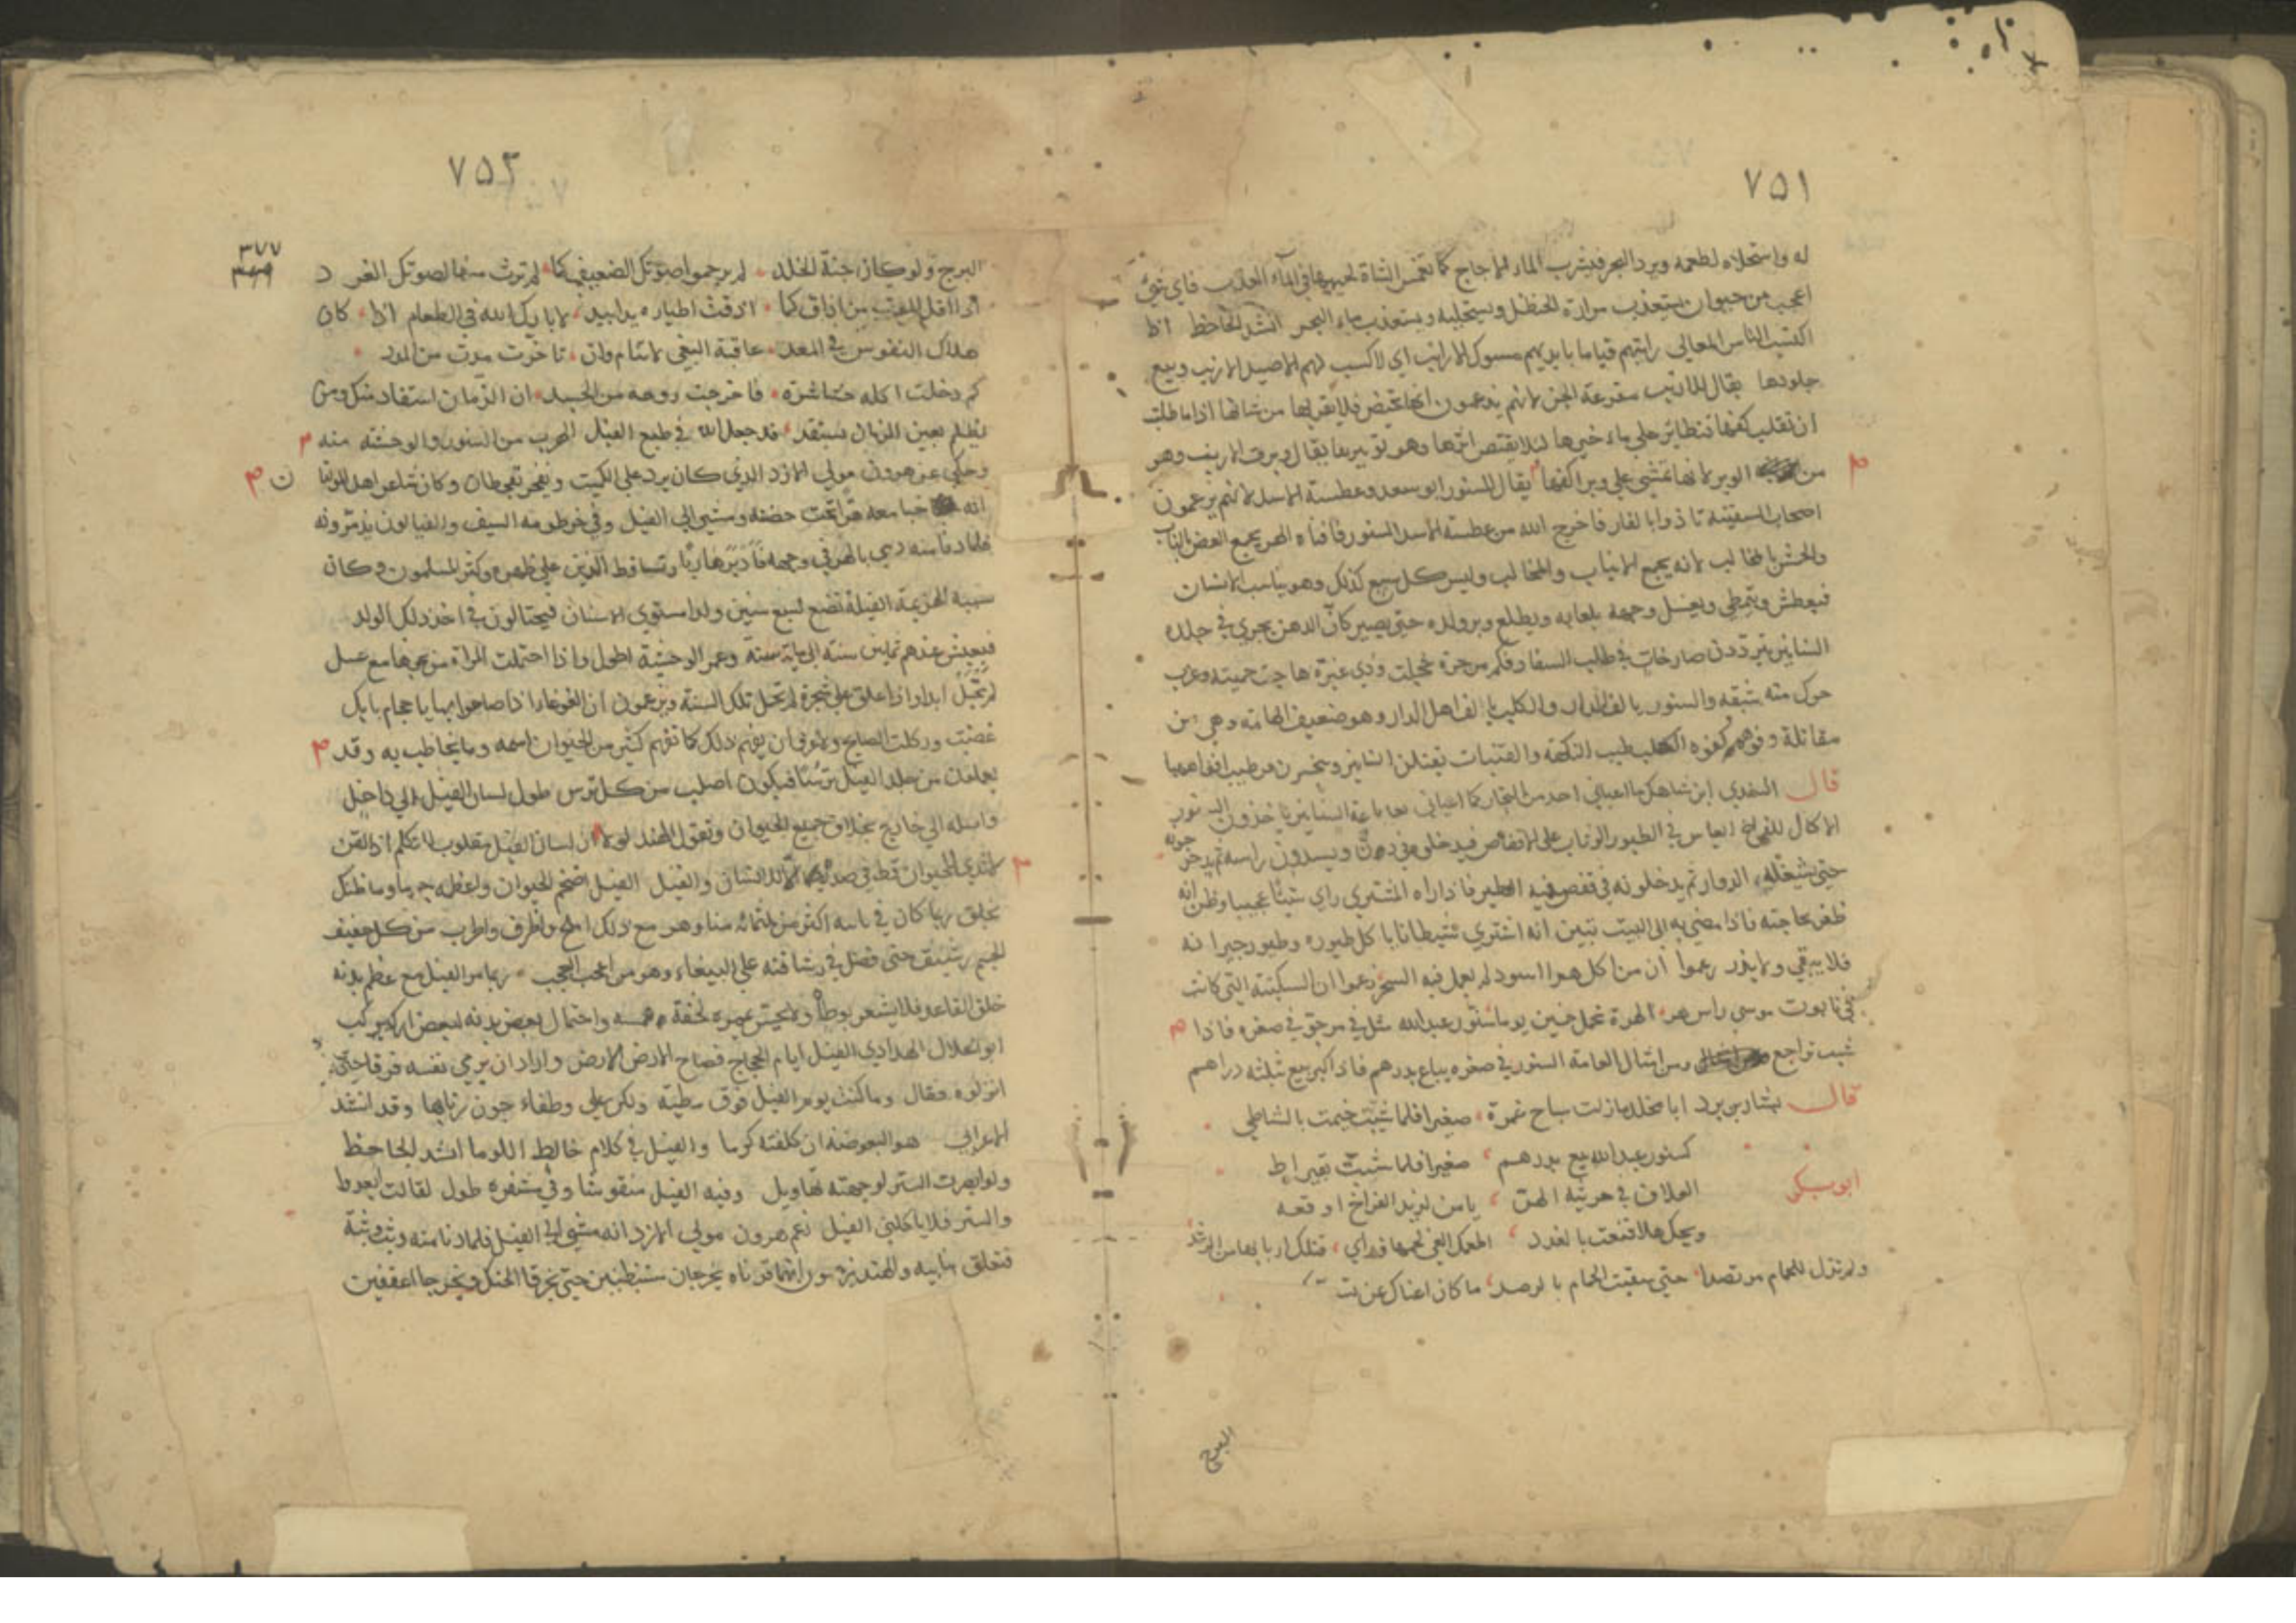 ٧٥١
له واستحلاه لطعمه ويرد البحر فيشرب الماء الاجاج كما تغمس الشاة لحييها في الماء العذب فاي شئ
اعجب من حيوان يستعذب مرارة الحنظل ويستحليه ويستعذب ماء البحر انشد الجاحظ اذا
اكتسب الناس المعالي رايتهم قياما بايديهم مسوك الارانب اي لا كسب لهم الا صيد الارنب وبيع
جلودها يقال للارنب مقرعة الجن لانهم يزعمون انها تحيض فلا يقربها من شانها اذا ما طلبت
ان تقلب كفها فتطا بزحلي ماء خيرها لئلا يقتص اثرها وهو توبيرها يقال وبرت الارنب وهو
من الوبر لانها تمشي على وبر اكفها يقال للسنور ابو سعد وعطسة الاسد لانهم يزعمون
اصحاب السفينة تاذوا بالفار فاخرج الله من عطسة الاسد السنور فافناه الهر يجمع العض بالناب
والخمش بالمخالب لانه يجمع الانياب والمخالب وليس كل سبع كذلك وهو يناسب الانسان
فيعطس ويتمطى ويغسل وجهه بلعابه ويطلع وبر ولده حتى يصير كان الدهن يجري في جلده
السنانير يترددن صارخات في طلب السفاد فكم من حرة خجلت وذي غيرة هاجت حميته وعزب
حرك منه شبقه والسنور يالف الدار والكلب يالف اهل الدار وهو ضعيف الهامة وهي من
مقاتله وفوهه كفوه الكلب طيب النكهة والفتيات يقبلن السنانير ويخبرن عن طيب افواهها
قال السندي ابن شاهك ما اعياني احد من التجار كما اعياني باعة السنانير ياخذون السنور
الاكال للفراخ العابر في الطيور الوثاب على الاقفاص فيدخلونه في دن ويسدون راسه ثم يدحرجونه
حتى يشغله الدوار ثم يدخلونه في قفص فيه الطير فاذا راه المشتري راى شيئا عجيبا وظن انه
ظفر بحاجته فاذا مضى به الى البيت تبين انه اشتري شيطانا ياكل طيوره وطيور جيرانه
فلا يبقي ولا يذر زعموا ان من اكل هرا اسود لم يعمل فيه السحر زعموا ان السكينة التي كانت
في تابوت موسى راس هر الهرة تحمل خمسين يوما سنور عبد الله مثل في مرجو في صغره فاذا
شب تراجع ومن امثال العامة السنور في صغره يباع بدرهم فاذا كبر بيع بثلثة دراهم
قال بشار بن برد ابا مخلد ما زلت سباح غمرة صغيرا فلما شبت خيمت بالشاطي
كسنور عبد الله بيع بدرهم صغيرا فلما شب بيع بقيراط
ابو بكر
العلاف في مرثية الهر يا من لذيذ الفراخ اوقعه
ويحك هلا قنعت بالغدد
ولم تزل للحمام مرتصدا حتى سقيت الحمام بالرصد ما كان اغناك عن
البرج
٧٥٢
٣٧٧
البرج ولو كان جنة الخلد لم يرحموا صوتك الضعيف كما لم ترث منها لصوتك الغرد
اذاقك الموت من اذاق كما اذقت اطياره يدا بيد لا بارك الله في الطعام اذا كان
هلاك النفوس في المعد عاقبة البغي لا تنام وان تاخرت مدة من المدد
كم دخلت اكلة حشا شره فاخرجت روحه من الجسد ان الزمان استقاد منك ومن
يظلم بعين الزمان يستقد قد جعل الله في طبع الفيل الهرب من السنور والوحشة منه
وحكي عن هرون مولى الازد الذي كان يرد على الكميت ويفخر بقحطان وكان شاعر اهل المولتان
انه خبا معه هرا تحت حضنه ومشى الى الفيل وفي خرطومه السيف والفيالون يذمرونه
فلما دنا منه رمى بالهر في وجهه فادبر هاربا وتساقط الذين على ظهره وكبر المسلمون وكان
سبب الهزيمة الفيلة تضع لسبع سنين ولدا مستوي الاسنان فيحتالون في اخذ ذلك الولد
فيعيش عندهم ثمانين سنة الى ماية سنة وعمر الوحشية اطول واذا احتملت المراة من نجوها مع عسل
لم تحبل ابدا واذا علق على شجرة لم تحمل تلك السنة ويزعمون ان الغوغا اذا صاحوا بها يا حجام بابك
غضبت وركلت الصايح ولا وفى ان يفهم ذلك كما تفهم كثير من الحيوان اسمه وما يخاطب به وقد
يعلمان من جلد الفيل ترسا فيكون اصلب من كل ترس طول لسان الفيل الى داخل
واصله الى خارج بخلاف جميع الحيوان وتقول الهند لولا ان لسان الفيل مقلوب لتكلم
لا ثدي للحيوان قط في صدره الا للانسان والفيل الفيل اضخم الحيوان واعظمه جرما وما ظنك
بخلق ربما كان في نابه اكثر من ثلثمائة منا وهو مع ذلك املح واظرف واطرب من كل خفيف
الجسم رشيق حتى فضل في رشاقته على الببغاء وهو من اعجب العجب ربما مر الفيل مع عظم بدنه
خلف القاعد فلا يشعر بوطئه ولا يحس بمروره لخفة همسه واحتمال بعض بدنه لبعض اركبوا
ابو الهلال الهدادي الفيل ايام الحجاج فصاح الارض الارض واراد ان يرمي نفسه فرقا حتى
انزلوه فقال وما كنت يوم الفيل فوق مطية ولكن على وطفاء جون ربابها وقد انشد
الاعرابي هو البعوضة ان كلفته كرما والفيل في كلام خالط اللوما انشد الجاحظ
ولو ابصرت الستر لوجهته تهاويل وفيه الفيل منقوشا وفي مشفره طول لقالت ابعدوا
والستر فلا ياكلني الفيل زعم هرون مولى الازد انه مشى الى الفيل فلما دنا منه وثب وثبة
فتعلق بنابيه والهند تزعمون انهما قرناه يخرجان مستبطنين حتى يخرقا الحنك ويخرجا اعقفين